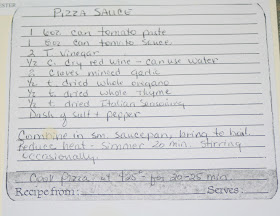 PIZZA SAUCE
1 6oz can tomato paste
1 8oz can tomato sauce
2 T vinegar
1/2 c. dry red wine - can use water
2 cloves minced garlic
1/2 t. dried whole oregano
1/2 t. dried whole thyme
1/2 t. dried Italian seasoning
Dash of salt + pepper
Combine in sm. saucepan, bring to boil
reduce heat - simmer 20 min. stirring
occasionally.
Cook Pizza at 425° for 20-25 min.
Recipe from: Serves: